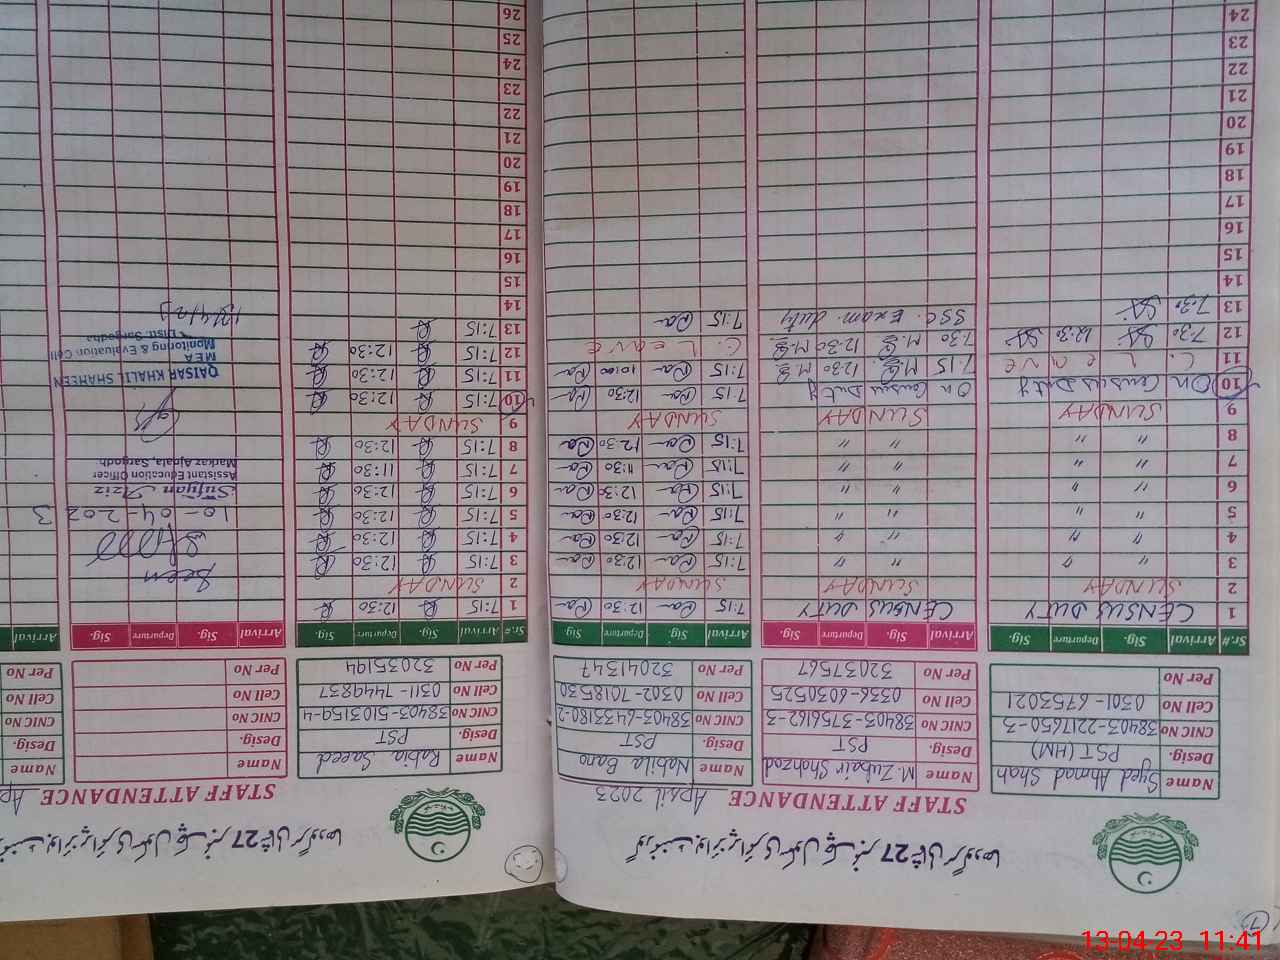 گورنمنٹ بوائز پرائمری سکول چک نمبر 27 شمالی سرگودھا
STAFF ATTENDANCE April 2023
Name Syed Ahmad Shah Name M. Zubair Shahzad Name Nabila Bano
Desig. PST (HM) Desig. PST Desig. PST
CNIC No 38403-2217650-3 CNIC No 38403-3756162-3 CNIC No 38403-6433180-2
Cell No 0301-6753021 Cell No 0336-6030525 Cell No 0302-7018530
Per No Per No 32037567 Per No 32041347
Sr.# Arrival Sig. Departure Sig. Arrival Sig. Departure Sig. Arrival Sig. Departure Sig.
1 CENSUS DUTY CENSUS DUTY 7:15 12:30
2 SUNDAY SUNDAY SUNDAY
3 " " " " 7:15 12:30
4 " " " " 7:15 12:30
5 " " " " 7:15 12:30
6 " " " " 7:15 12:30
7 " " " " 7:15 11:30
8 " " " " 7:15 12:30
9 SUNDAY SUNDAY SUNDAY
10 On Census Duty On Census Duty 7:15 12:30
11 C. Leave 7:15 12:30 7:15
12 7:30 12:30 7:30 12:30 C. Leave
13 7:30 SSC. Exam. duty 7:15
14
15
16
17
18
19
20
21
22
23
24
گورنمنٹ بوائز پرائمری سکول چک نمبر 27 شمالی سرگودھا
STAFF ATTENDANCE Ap
Name Rabia Saeed Name Name
Desig. PST Desig. Desig.
CNIC No 38403-5103159-4 CNIC No CNIC No
Cell No 0311-7449837 Cell No Cell No
Per No 32035194 Per No Per No
Sr.# Arrival Sig. Departure Sig. Arrival Sig. Departure Sig. Arrival
1 7:15 12:30
2 SUNDAY
3 7:15 12:30
4 7:15 12:30
5 7:15 12:30
6 7:15 12:30
7 7:15 11:30
8 7:15 12:30
9 SUNDAY
10 7:15 12:30
11 7:15 12:30
12 7:15 12:30
13 7:15
14
15
16
17
18
19
20
21
22
23
24
25
26
Seen
10-04-2023
Sufyan Aziz
Assistant Education Officer
Markaz Ajnala, Sargodh
QAISAR KHALIL SHAHEEN
MEA
Monitoring & Evaluation Cell
Distt. Sargodha
13/4/23
13-04-23 11:41